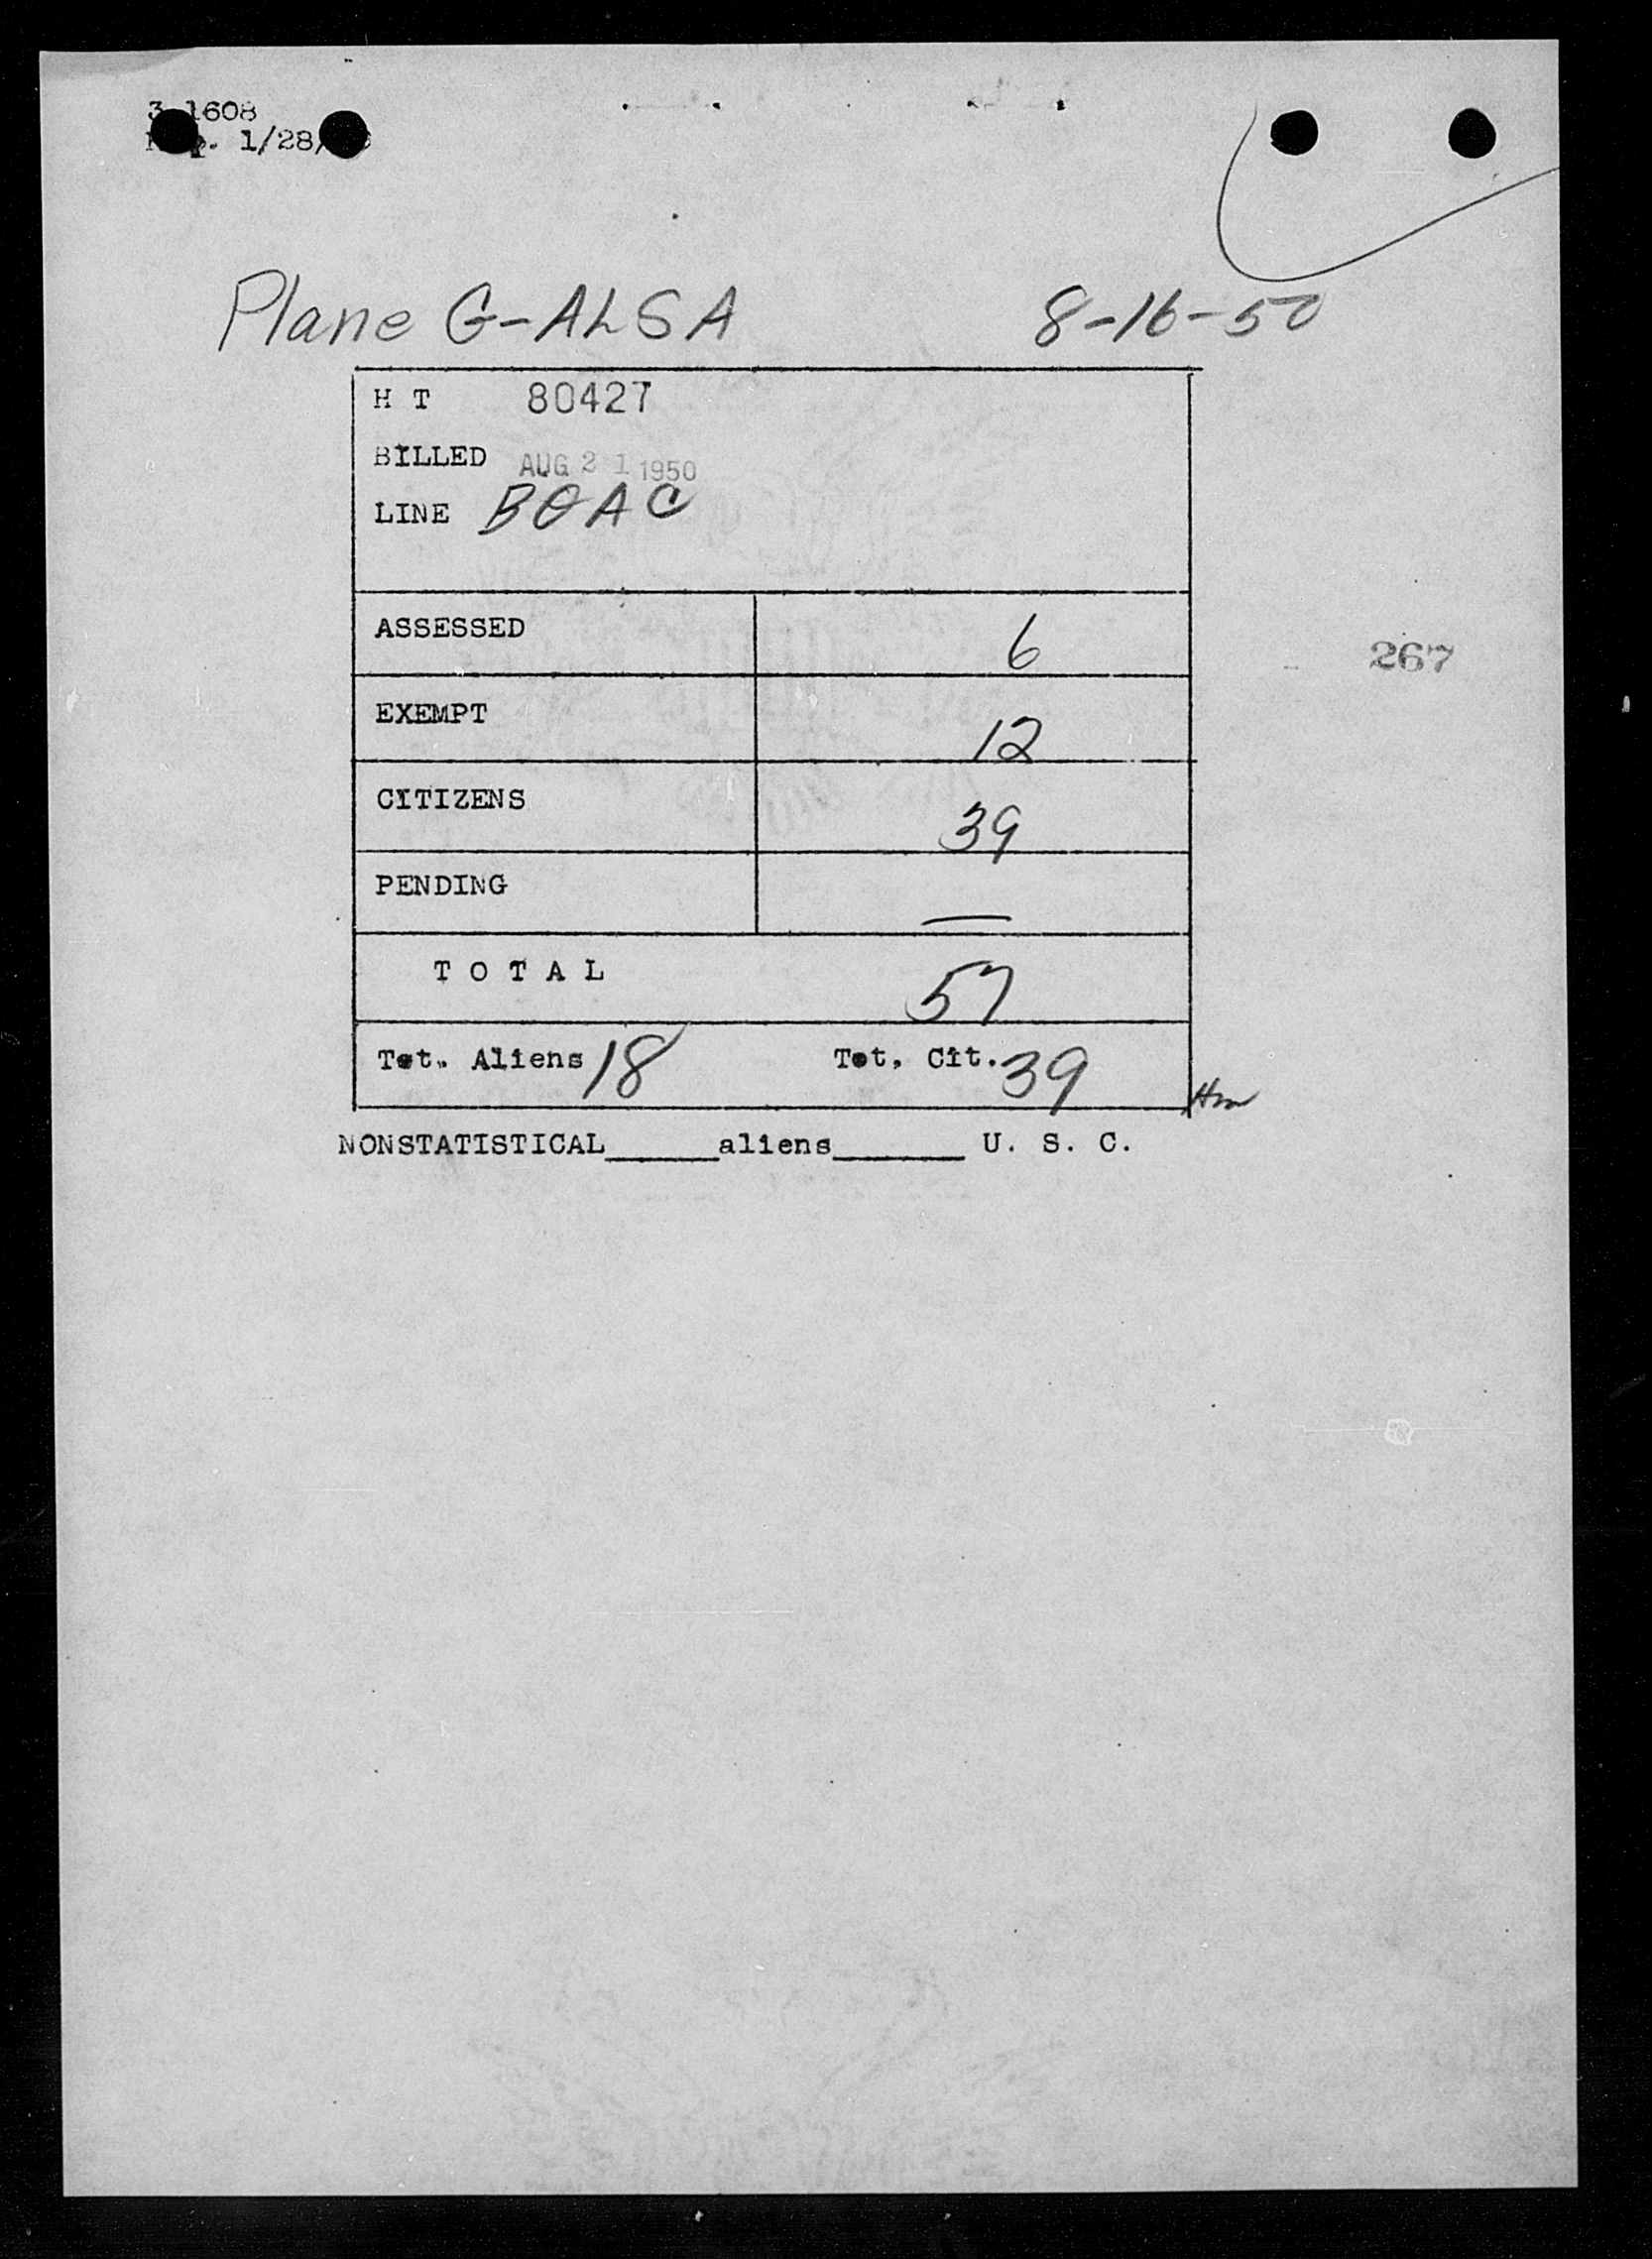 3 1608
1/28/
Plane G-ALSA 8-16-50
H T 80427
BILLED AUG 21 1950
LINE BOAC
ASSESSED 6
267
EXEMPT 12
CITIZENS 39
PENDING —
T O T A L 57
Tot. Aliens 18 Tot. Cit. 39
NONSTATISTICAL______aliens_______ U. S. C.